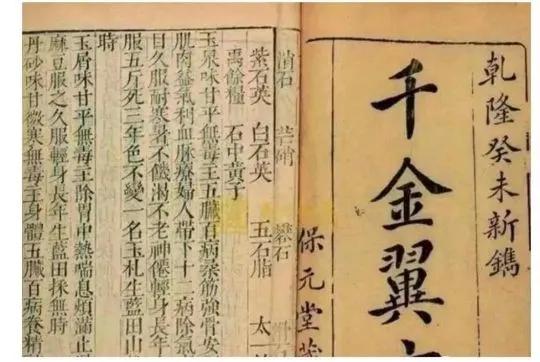 乾隆癸未新鐫
千金翼
保元堂
消石 芒硝 礬石
紫石英 白石英 五石脂 太一
禹餘糧 石中黃子
玉泉味甘平無毒主五臟百病柔筋強骨安
肌肉益氣利血脉療婦人帶下十二病除氣
日久服耐寒暑不飢渴不老神僊輕身長年
服五斤死三年色不變一名玉札生藍田山
時
玉屑味甘平無毒主除胃中熱喘息煩滿止
麻豆服之久服輕身長年生藍田採無時
丹砂味甘微寒無毒主身體五臟百病養精